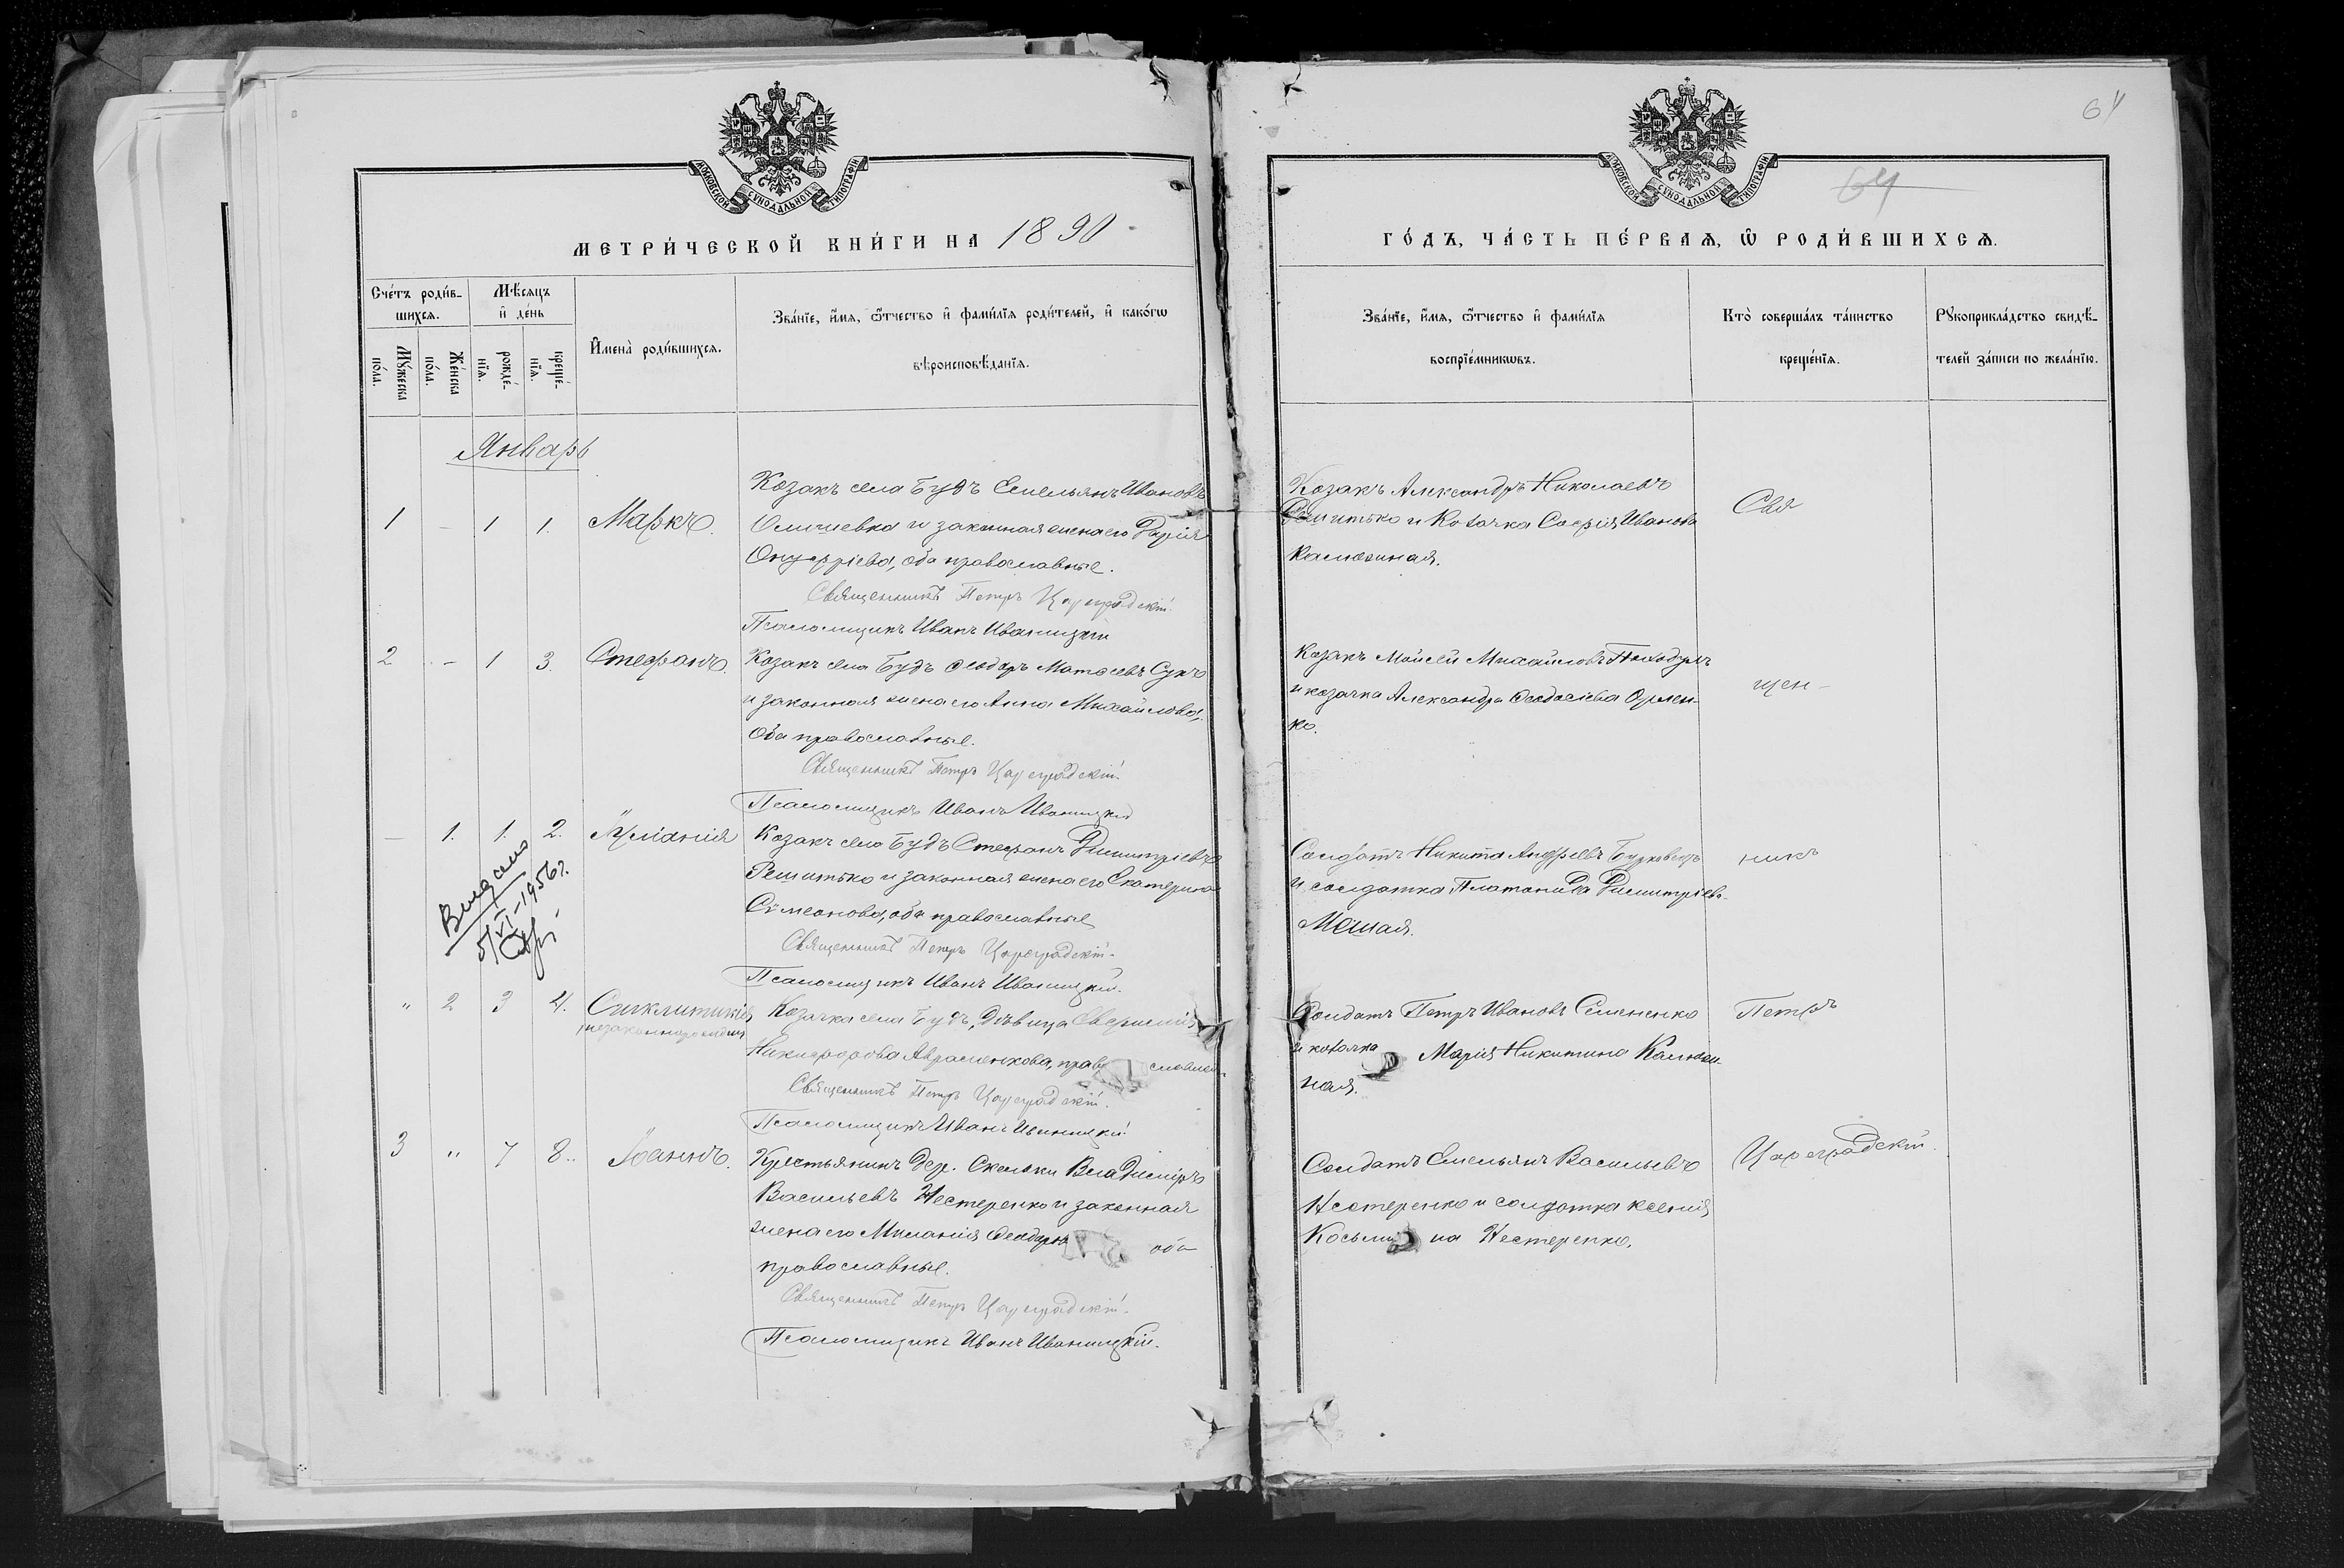 МОСКОВСКОЙ СУНОДАЛЬНОЙ ТИПОГРАФІИ
МЕТРИ́ЧЕСКОЙ КНИ́ГИ НА 1890
Сче́тъ роди́в-
шихсѧ.
Мѣ́сѧцъ
и҆ де́нь
Мꙋ́жеска
по́ла.
Же́нска
по́ла.
рожде́-
нїѧ.
креще́-
нїѧ.
И҆мена̀ роди́вшихсѧ.
Зва́нїе, и҆́мѧ, ѻ҆́тчество и҆ фами́лїѧ роди́телей, и҆ како́гѡ
вѣроисповѣ́данїѧ.
Январь
1 - 1 1. Маркъ.
Козакъ села Будъ Емельянъ Ивановъ
и законная жена его Дарія
Онуфріева, оба православные.
Священникъ Петръ Цареградскій.
Псаломщикъ Иванъ Иваницкій
2 - 1 3. Стефанъ.
Козакъ села Будъ Феодоръ Матѳеевъ Сукъ
и законная жена его Анна Михайлова,
оба православные.
Священникъ Петръ Цареградскій.
Псаломщикъ Иванъ Иваницкій
— 1. 1. 2. Іуліанія
Козакъ села Будъ Стефанъ Димитріевъ
Решитько и законная жена его Екатерина
Сѵмеонова, оба православные
Священникъ Петръ Цареградскій.
Псаломщикъ Иванъ Иваницкій.
Выдано
5/VI-1956г.
" 2 3 4. Синклитикія
незаконнорожденная
Козачка села Будъ, дѣвица Евфимія
Никифорова Авраменкова, православная
Священникъ Петръ Цареградскій.
Псаломщикъ Иванъ Иваницкій
3 " 7 8. Іоаннъ.
Крестьянинъ дер. Скельки Владиміръ
Васильевъ Нестеренко и законная
жена его Миланія оба
православные.
Священникъ Петръ Цареградскій.
Псаломщикъ Иванъ Иваницкій.
64
МОСКОВСКОЙ СУНОДАЛЬНОЙ ТИПОГРАФІИ
64
ГО́ДЪ, ЧА́СТЬ ПЕ́РВАѦ, Ѡ҆ РОДИ́ВШИХСѦ.
Зва́нїе, и҆́мѧ, ѻ҆́тчество и҆ фами́лїѧ
воспрїе́мникѡвъ.
Кто̀ соверша́лъ та́инство
креще́нїѧ.
Рꙋкоприкла́дство свидѣ́-
телей за́писи по жела́нїю.
Козакъ Александръ Николаевъ
Решитько и козачка Софія Иванова
Калюжная.
Свя
Козакъ Моисей Михайловъ
и козачка Александра Феодосіева Орлен-
ко.
щен-
Солдатъ Никита Андреевъ Бурковецъ
и солдатка Платонида Димитріева
Мешая.
никъ
Солдатъ Петръ Ивановъ Семененко
и козачка Марія Никитина Калюж-
ная.
Петръ
Солдатъ Емельянъ Васильевъ
Нестеренко и солдатка Ксенія
Косьмина Нестеренко.
Цареградскій.